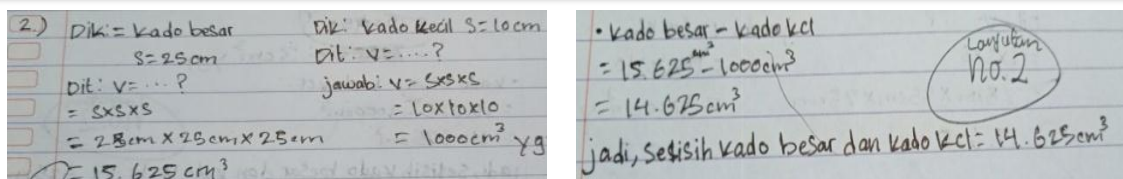 2.) Dik: = Kado besar
S = 25 cm
Dit: V = ... ?
= S x S x S
= 25cm x 25cm x 25cm
= 15.625 cm³
Dik: Kado kecil S = 10 cm
Dit: V = .... ?
jawab: V = S x S x S
= 10 x 10 x 10
= 1000 cm³ yg
• Kado besar - Kado kcl
= 15.625 cm³ - 1000 cm³
= 14.625 cm³
jadi, selisih kado besar dan kado kcl = 14.625 cm³
Lanjutan
no. 2